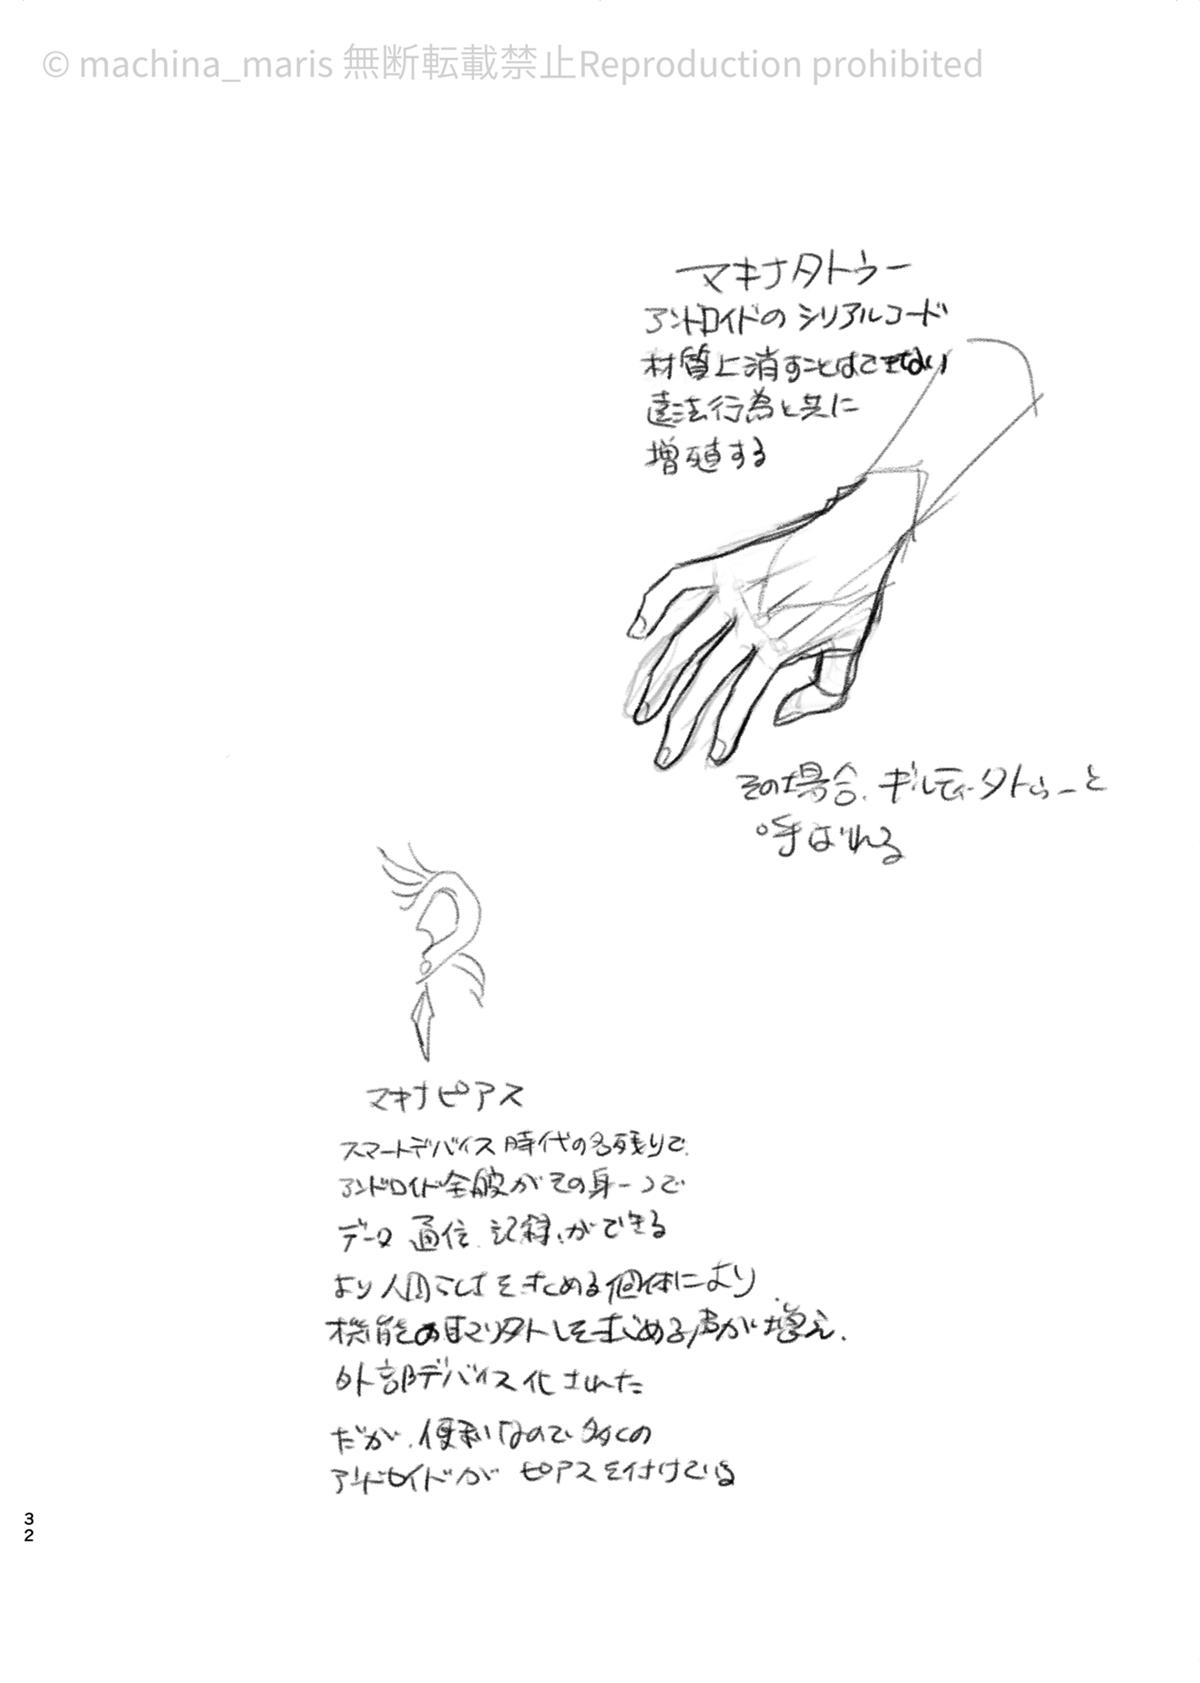 © machina_maris 無断転載禁止Reproduction prohibited
マキナタトゥー
アンドロイドのシリアルコード
材質上消すことはできない
違法行為と共に
増殖する
その場合、ギルティータトゥーと
呼ばれる
マキナピアス
スマートデバイス時代の名残りで、
アンドロイド全般がその身一つで
データ通信、記録、ができる
より人間らしさを求める個体により
機能のオミットを求める声が増え、
外部デバイス化された
だが、便利なので多くの
アンドロイドがピアスを付けている
32